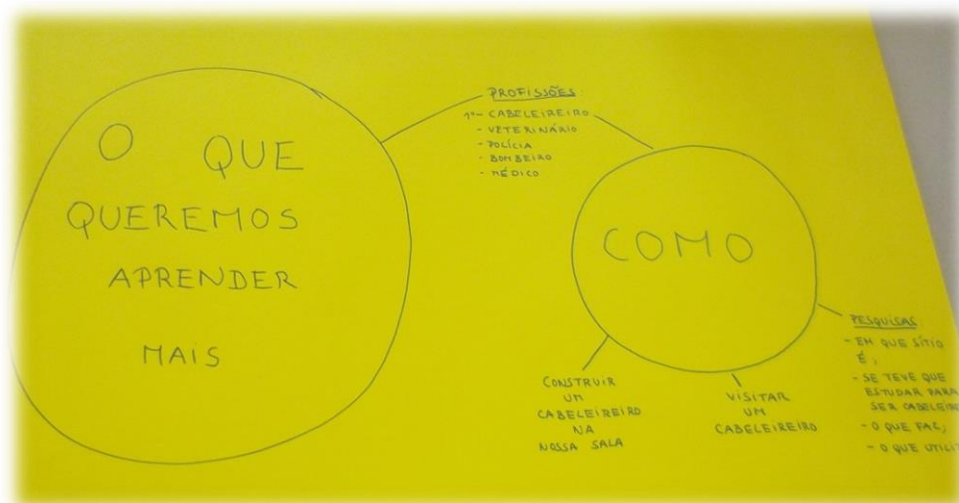 O QUE
QUEREMOS
APRENDER
MAIS
PROFISSÕES
1º- CABELEIREIRO
- VETERINÁRIO
- POLÍCIA
- BOMBEIRO
- MÉDICO
COMO
CONSTRUIR
UM
CABELEIREIRO
NA
NOSSA SALA
VISITAR
UM
CABELEIREIRO
PESQUISAS
- EM QUE SÍTIO
É;
- SE TEVE QUE
ESTUDAR PARA
SER CABELEI
- O QUE FAZ;
- O QUE UTILI